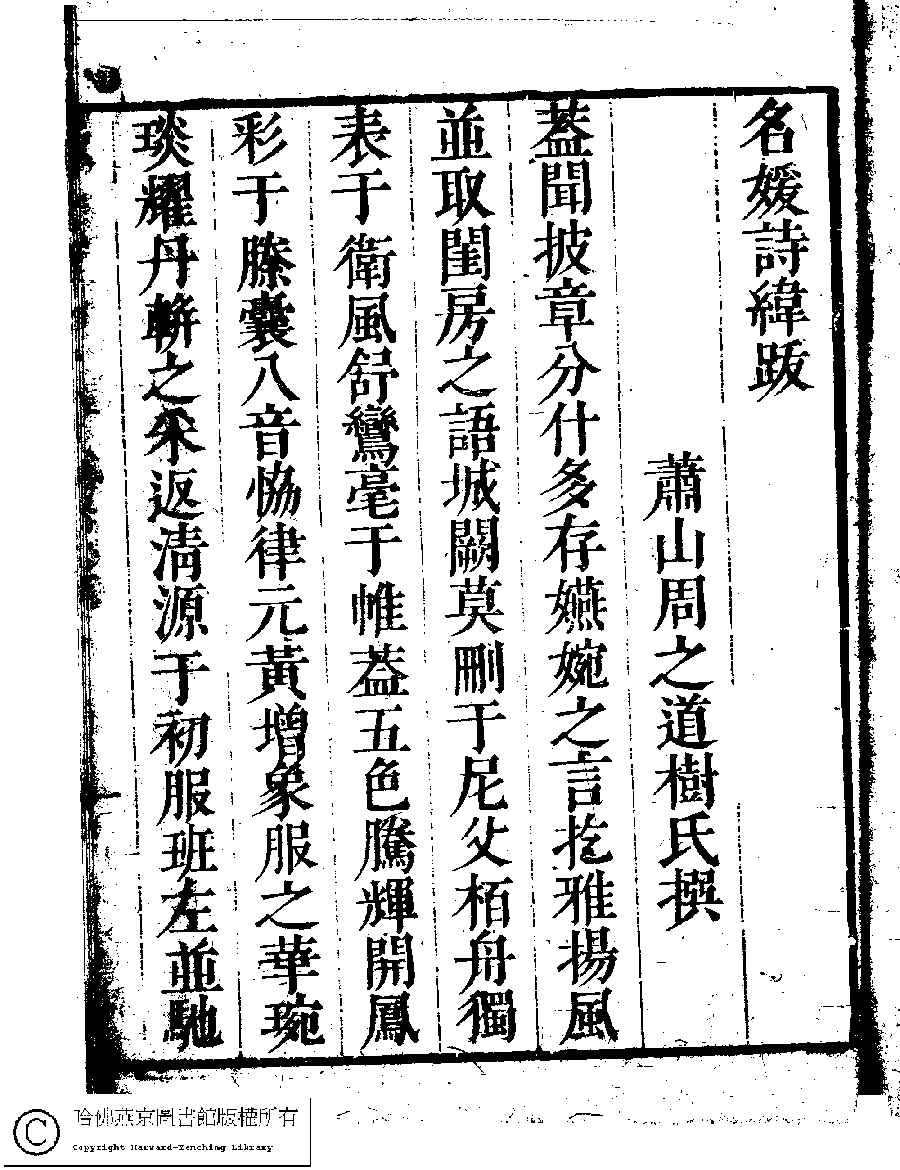 名媛詩緯跋
蕭山周之道樹氏撰
葢聞披章分什多存嬿婉之言扢雅揚風
並取閨房之語城闕莫刪于尼父栢舟獨
表于衛風舒鸞毫于帷葢五色騰輝開鳳
彩于縢囊八音恊律元黃增象服之華琬
琰耀丹軿之采返淸源于初服班左並馳
哈佛燕京圖書館版權所有
Copyright Harvard-Yenching Library